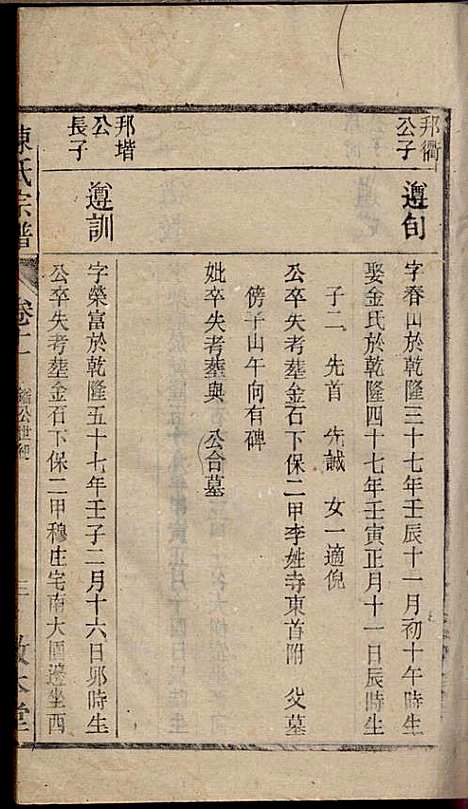 邦衢
公子
遵旬
字春山於乾隆三十七年壬辰十一月初十午時生
娶金氏於乾隆四十七年壬寅正月十一日辰時生
子二 先首 先誠 女一適倪
公卒失考塟金石下保二甲李姓寺東首附 父墓
傍子山午向有碑
妣卒失考塟與 公合墓
邦堦
公
長子
遵訓
字榮富於乾隆五十七年壬子二月十六日卯時生
公卒失考塟金石下保二甲穆庄宅南大圍邊坐西
陳氏宗譜
卷二
三
敦本堂